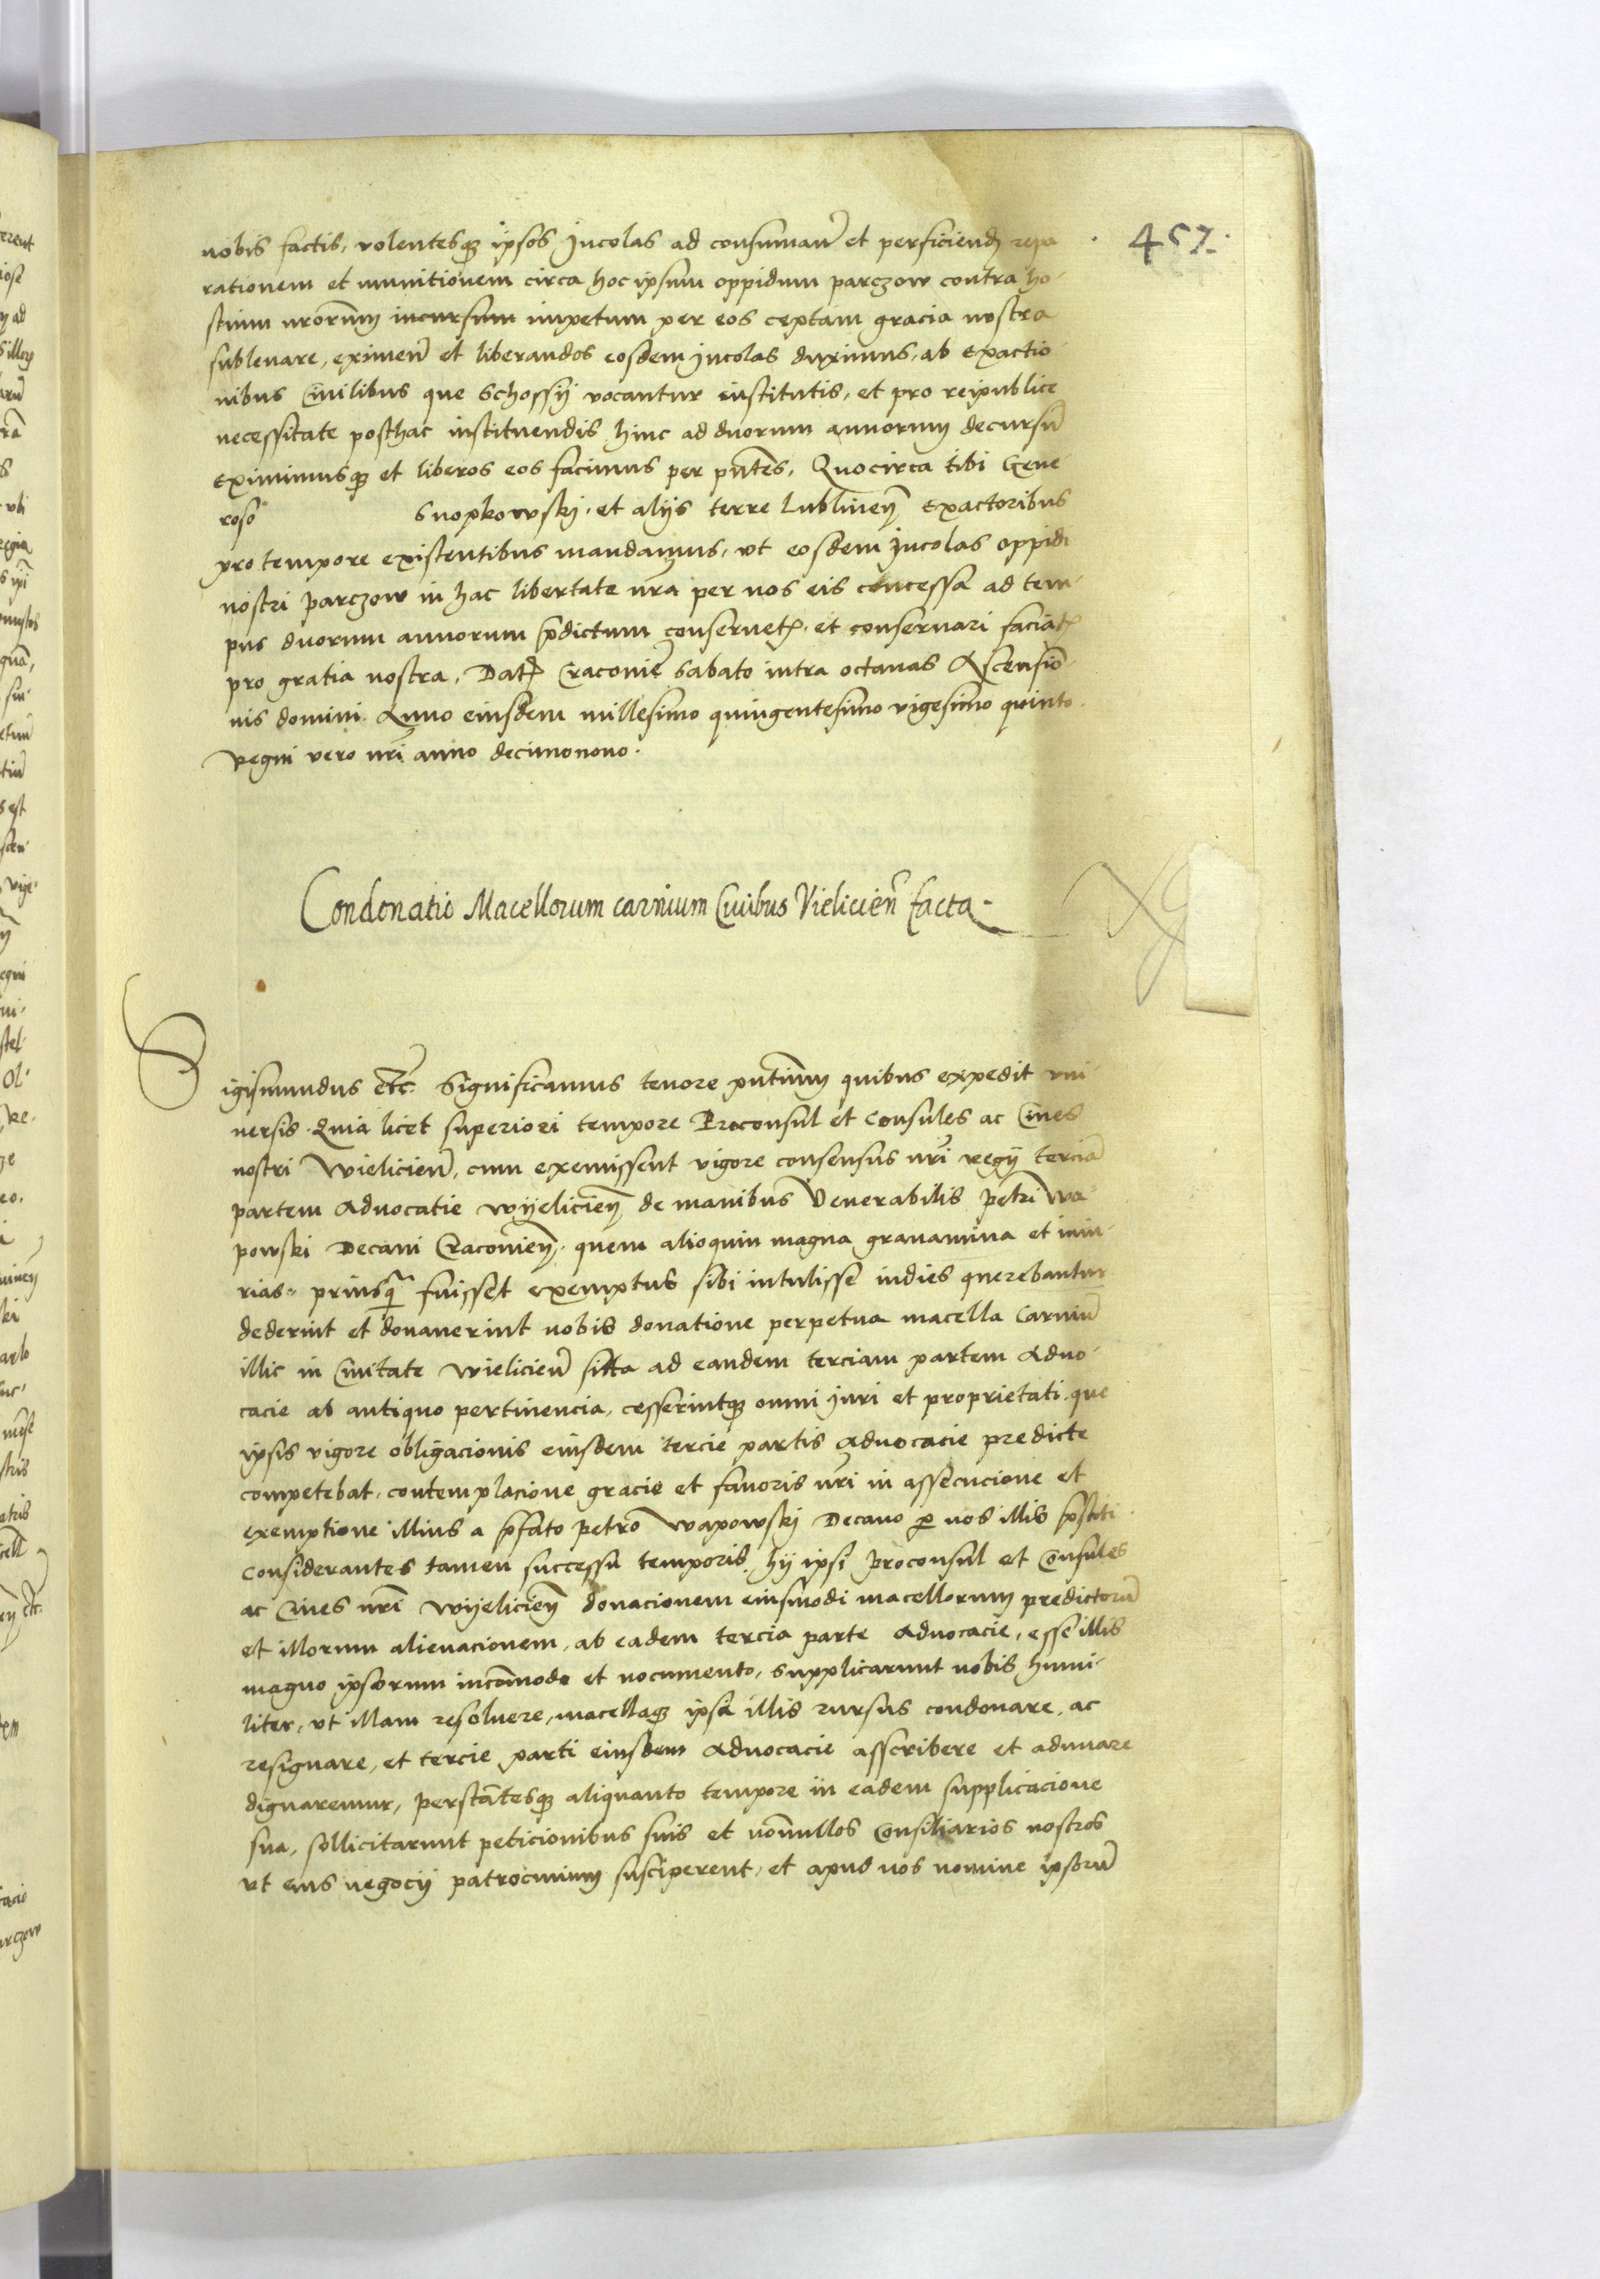 457.
nobis factis, volentesq₃ ipsos Incolas ad consumañ et perficiend repa
rationem et munitionem circa hoc ipsum oppidum parczow contra ho-
stium nrorum incursum impetum per eos ceptam gracia nostra
sublevare, eximeñ et liberandos eosdem Incolas duximus, ab Exactio-
nibus Civilibus que Schossy vocantur institutis, et pro reipublice
necessitate posthac instituendis hinc ad duorum annorum decursũ
Eximimusq₃ et liberos eos facimus per pñtes, Quocirca tibi Gene-
roso Snopkowskj. et alijs terre Lublineñ Exactoribus
pro tempore existentibus mandamus, ut eosdem Incolas oppidi
nostri parczow in hac libertate nra per nos eis concessa ad tem-
pus duorum annorum p̃dictum conservet. et conservari faciat
pro gratia nostra, Dat Cracovie Sabato intra octavas Ascensio-
nis domini. Anno eiusdem millesimo quingentesimo vigesimo quinto.
Regni vero nri anno decimonono.
Condonatio Macellorum carnium Civibus Vielicieñ facta.
Sigismundus etc. Significamus tenore pntium quibus expedit vni-
versis. Quia licet superiori tempore Proconsul et Consules ac Cives
nostri Wielicieñ, cum exemissent vigore consensus nri regij terciã
partem Advocatie Wyelicieñ de manibus Venerabilis petri Wa-
powski Decani Cracovieñ. quem alioquin magna gravamina et iniu-
rias priusq̃ fuisset exemptus sibi intulisse indies querebantur
dederint et donaverint nobis donatione perpetua macella Carniũ
illic in Civitate Wielicieñ sitta ad eandem terciam partem Advo-
cacie ab antiquo pertinencia, cesserintq₃ omni juri et proprietati que
ipsis vigore obligacionis eiusdem tercie partis Advocacie predicte
competebat, contemplacione gracie et favoris nri in assecucione et
exemptione illius a p̃fato petro Wapowski Decano p nos illis p̃stiti.
Considerantes tamen successu temporis hij ipsi proconsul et Consules
ac Cives nri Wyelicieñ donacionem eiusmodi macellorum predictorũ
et illorum alienacionem, ab eadem tercia parte Advocacie, esse illis
magno ipsorum incõmodo et nocumento, supplicarunt nobis humi-
liter, ut illam resolvere, macellaq₃ ipsa illis rursus condonare, ac
resignare, et tercie parti eiusdem Advocacie asscribere et adunare
dignaremur, perstãtesq₃ aliquanto tempore in eadem supplicacione
sua, sollicitarunt peticionibus suis et nõnullos Consiliarios nostros
ut eius negocij patrocinium susciperent, et apud nos nomine ipsorũ